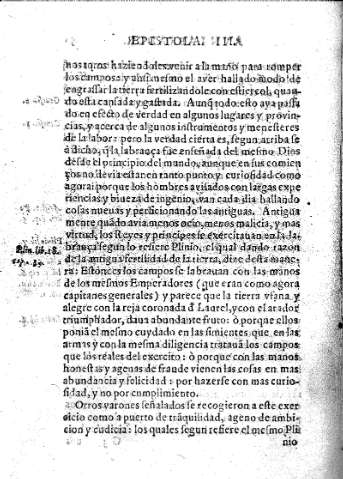 EPISTOLA
nos toros haziendoles venir a la mano para romper
los campos: y ansi mesmo el aver hallado modo de
engrassar la tierra fertilizandole con estiercol, quan-
do esta cansada y gastada. Aunq̃ todo esto aya passa
do en efecto de verdad en algunos lugares y provin-
cias, y acerca de algunos instrumentos y menesteres
de la labor: pero la verdad cierta es, segun arriba se
à dicho, q̃ la labrança fue enseñada del mesmo Dios
desde el principio del mundo, aunque en sus comien
ços no devia estar en tanto punto y curiosidad como
agora: porque los hombres avisados con larga expe
riencia y biveza de ingenio, van cada dia hallando
cosas nuevas y perficionando las antiguas. Antigua
mente quando avia menos ocio, menos malicia, y mas
virtud, los Reyes y principes se exercitavan en la la-
brança segun lo refiere Plinio, el qual dando razon
de la antigua fertilidad de la tierra, dize desta mane-
ra: Estonces los campos se labravan con las manos
de los mesmos Emperadores (que eran como agora
capitanes generales) y parece que la tierra ufana y
alegre con la reja coronada d̃ Laurel, y con el arador
triumphador, dava abundante fruto: ò porque ellos
poniã el mesmo cuydado en las simientes que en las
armas y con la mesma diligencia tratavã los campos
que los reales del exercito: ò porque con las manos
honestas y agenas de fraude vienen las cosas en mas
abundancia y felicidad: por hazerse con mas curio-
sidad, y no por cumplimiento.
Otros varones señalados se recogieron a este exer
cicio como a puerto de trãquilidad, ageno de ambi-
cion y cudicia: los quales segun refiere el mesmo Pli
nio
Plin. lib. 18.